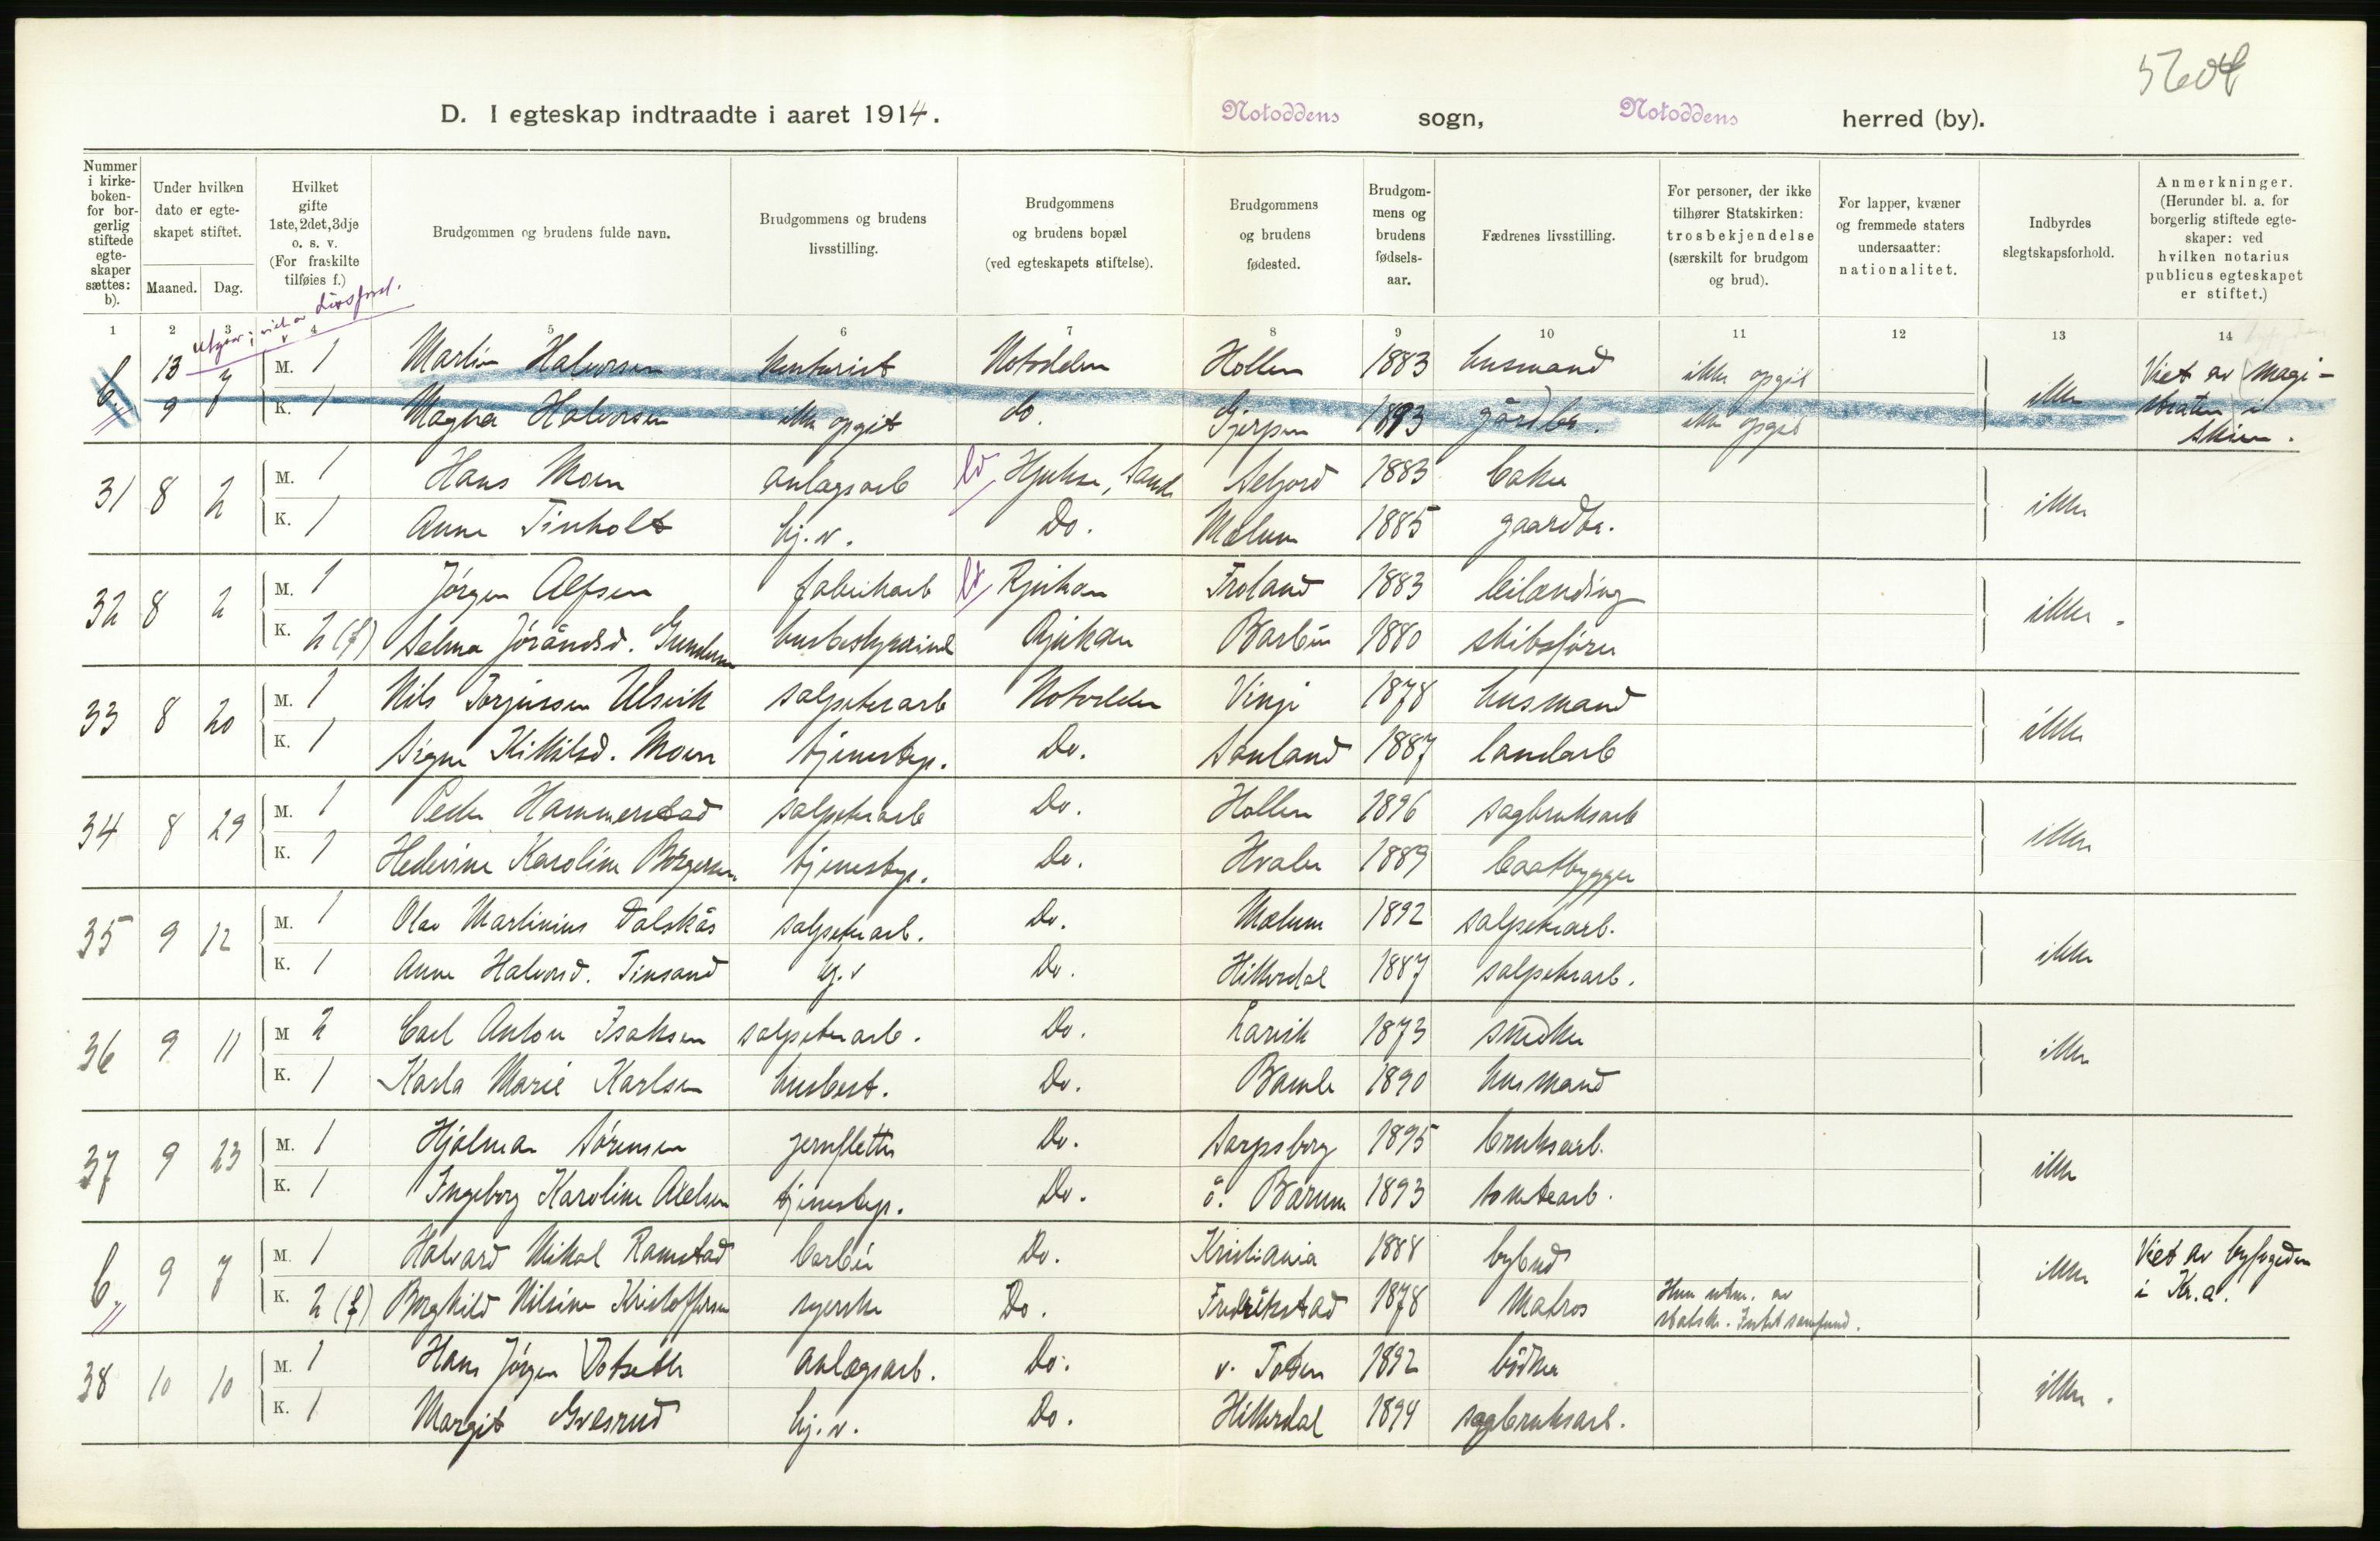 5604
D. I egteskap indtraadte i aaret 1914. Notoddens sogn, Notoddens herred (by).
Nummer i kirkeboken- for borgerlig stiftede egteskaper sættes: b).
Under hvilken dato er egteskapet stiftet.
Maaned. Dag.
Hvilket gifte 1ste, 2det, 3dje o. s. v. (For fraskilte tilføies f.)
Brudgommen og brudens fulde navn.
Brudgommens og brudens livsstilling.
Brudgommens og brudens bopæl (ved egteskapets stiftelse).
Brudgommens og brudens fødested.
Brudgommens og brudens fødselsaar.
Fædrenes livsstilling.
For personer, der ikke tilhører Statskirken: trosbekjendelse (særskilt for brudgom og brud).
For lapper, kvæner og fremmede staters undersaatter: nationalitet.
Indbyrdes slegtskapsforhold.
Anmerkninger. (Herunder bl. a. for borgerlig stiftede egteskaper: ved hvilken notarius publicus egteskapet er stiftet.)
1 2 3 4 5 6 7 8 9 10 11 12 13 14
b. 13 7 M. 1 Martin Halvorsen kontorist Notodden Hollen 1883 husmand ikke opgit ikke Viet av magi-
9 K. 1 Magna Halvorsen ikke opgit do. Gjerpen 1893 gårdbr. ikke opgit straten i
Skien.
31 8 2 M. 1 Hans Moen anlægsarb Hjukse, Saude Seljord 1883 baker ikke
K. 1 Anne Tinholt hj. v. Do. Melum 1885 gaardbr.
32 8 2 M. 1 Jörgen Alfsen fabrikarb Rjukan Froland 1883 leilænding ikke.
K. 2 (f) Selma Jörandsd. Gundersen husbestyrerinde Rjukan Barbu 1880 skibsförer
33 8 20 M. 1 Nils Torjussen Ulsvik salpeterarb Notodden Vinje 1878 husmand ikke
K. 1 Signe Kittilsd. Moen tjenestep. Do. Sauland 1887 landarb
34 8 29 M. 1 Peder Hammerstad salpeterarb Do. Hollen 1896 sagbruksarb ikke
K. 1 Hedevine Karoline Börgersen tjenestep. Do. Hvaler 1889 baatbygger
35 9 12 M. 1 Olav Martinius Dalskås salpeterarb. Do. Melum 1892 salpeterarb. ikke
K. 1 Anne Halvorsd. Tinsand hj. v Do. Hitterdal 1887 salpeterarb.
36 9 11 M 2 Carl Anton Isaksen salpeterarb. Do. Larvik 1873 snedker ikke
K. 1 Karla Marie Karlsen husbest. Do. Bamle 1890 husmand
37 9 23 M. 1 Hjalmar Sörensen jernfletter Do. Sarpsborg 1895 bruksarb. ikke
K. 1 Ingeborg Karoline Adelsen tjenestep. Do. ö. Bærum 1893 tomtearb.
b. 9 7 M. 1 Halvard Mikal Ramstad barbér Do. Kristiania 1888 bybud ikke Viet av byfogden
K. 2 (f) Borghild Nilsine Kristoffersen syerske Do. Fredrikstad 1878 Matros Hun utm. av i Kr.a.
statsk. Intet samfund.
38 10 10 M. 1 Hans Jörgen Dotseth anlægsarb. Do. v. Toten 1892 bödker ikke.
K. 1 Margit Gvæsrud hj. v. Do. Hitterdal 1894 sagbruksarb.